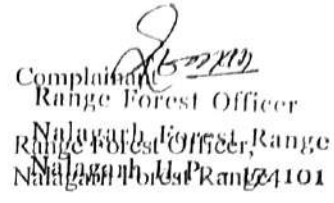 Complainant
Range Forest Officer
Nalagarh Forest Range
Range Forest Officer,
Nalagarh H.P. - 174101
Nalagarh Forest Range